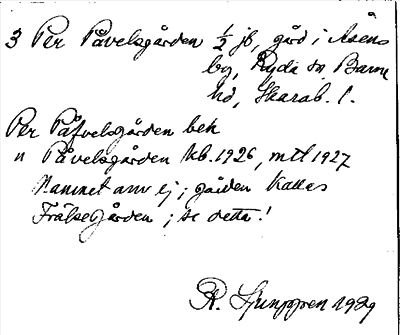 3 Per Påvelsgården ½ jb, gård i Åsens
by, Ryda sn, Barne
hd, Skarab. l.
Per Påfvelsgården bek
" Påvelsgården kb. 1926, mtl 1927
Namnet anv ej; gården kallas
Frälsegården; se detta!
R. Ljunggren 1929